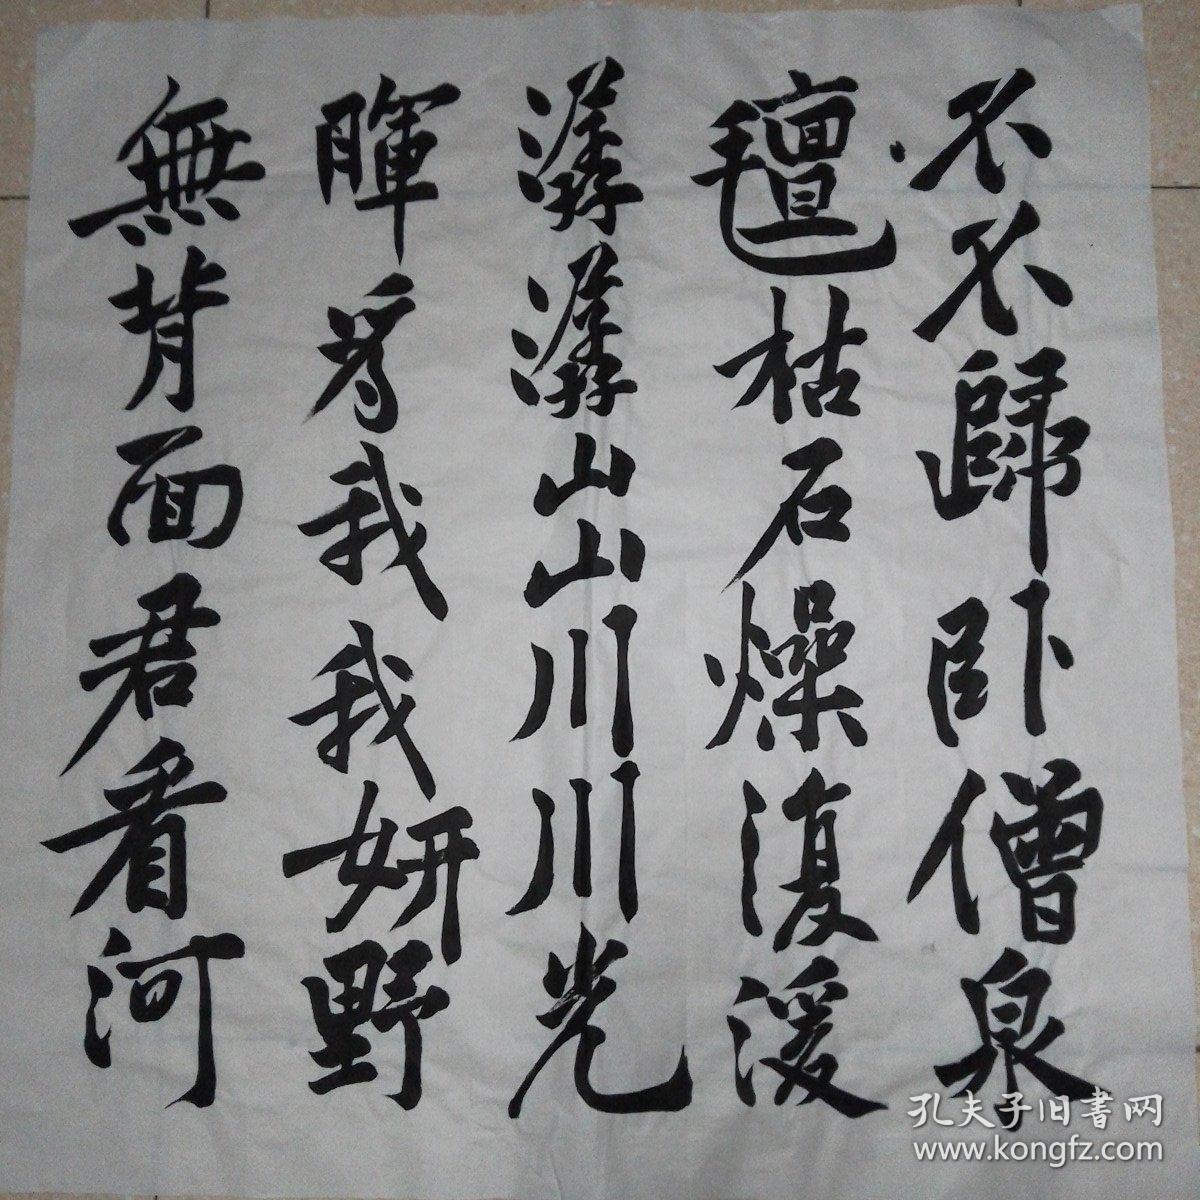 不不歸臥僧泉
氈枯石燥復湲
潺潺山山川川光
暉爲我我妍野
無背面君看河
孔夫子旧書网
www.kongfz.com